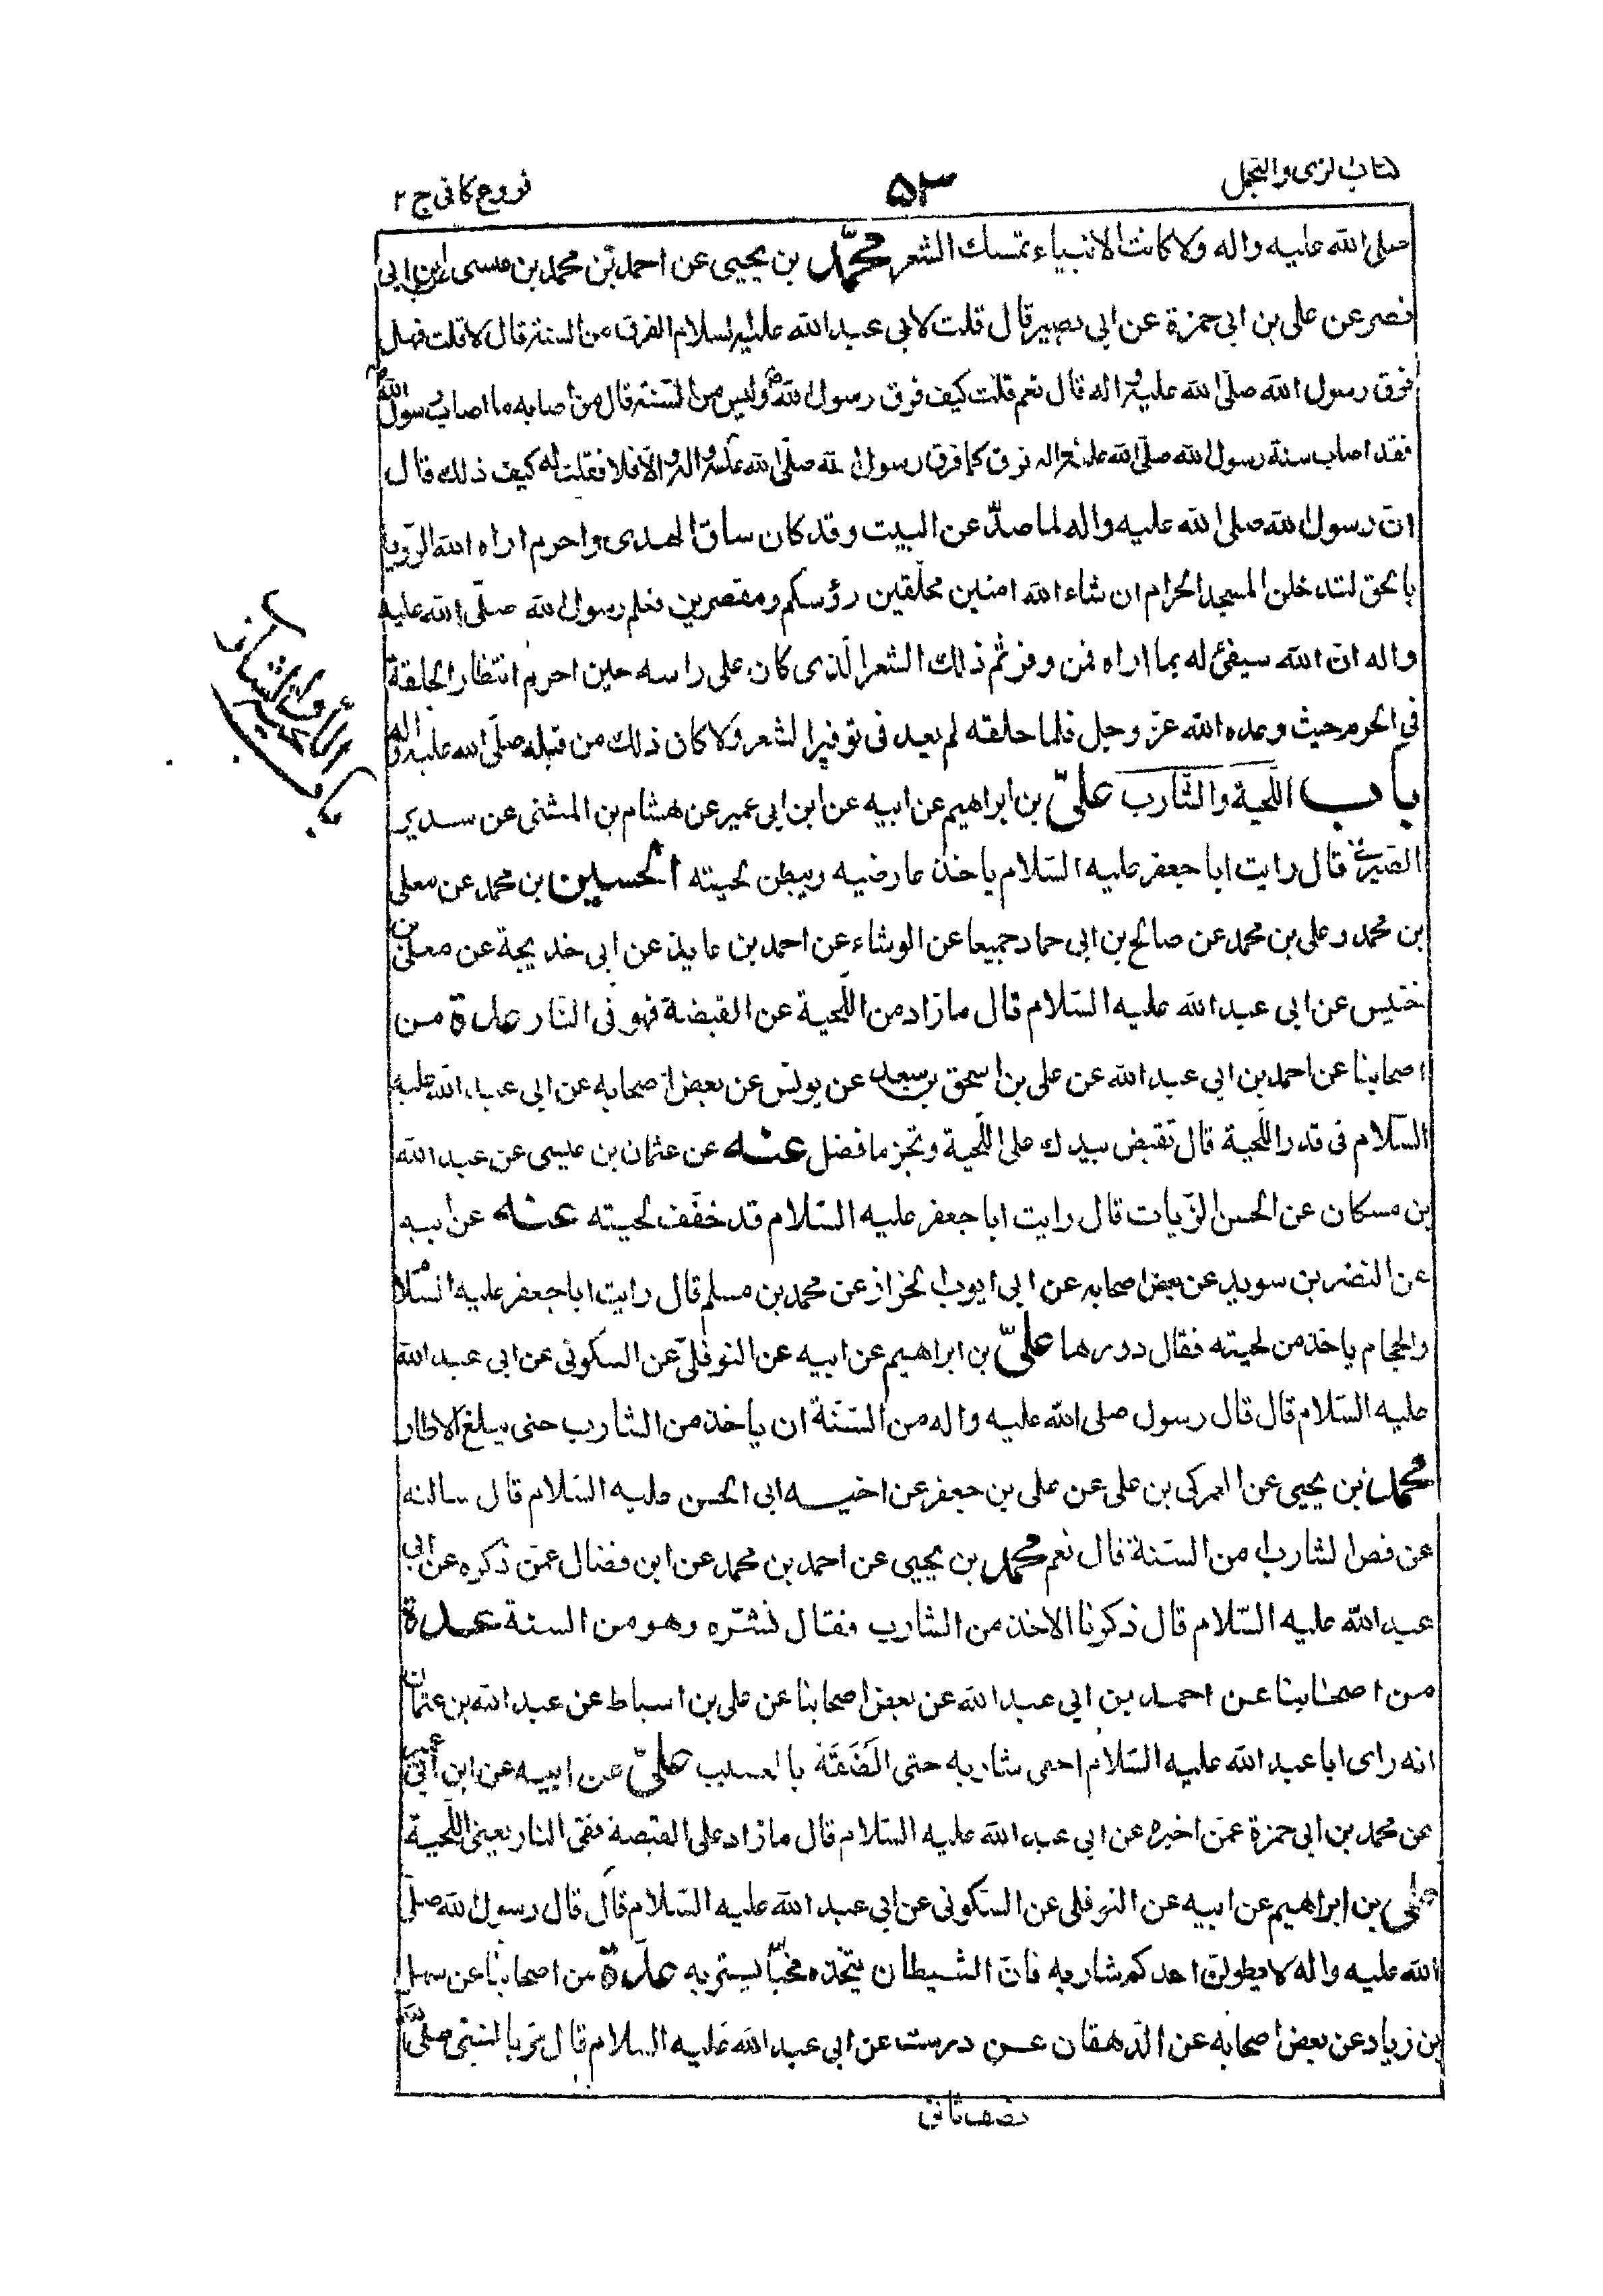 كتاب الزى والتجمل
۵۳
فروع كافى ج ۲
صلى الله عليه واله ولا كانت الانبياء تمسك الشعر محمد بن يحيى عن احمد بن محمد بن عيسى عن ابن ابى
نصر عن على بن ابى حمزة عن ابى بصير قال قلت لابى عبد الله عليه السلام الفرق من السنة قال لا قلت فهل
فرق رسول الله صلى الله عليه واله قال نعم قلت كيف فرق رسول الله ص وليس من السنة قال من اصابه ما اصاب رسول الله ص
فقد اصاب سنة رسول الله صلى الله عليه واله فرق كما فرق رسول الله صلى الله عليه واله والا فلا فقلت له كيف ذلك قال
ان رسول الله صلى الله عليه واله لما صدّ عن البيت وقد كان ساق الهدى واحرم اراه الله الرؤيا
بالحق لتدخلن المسجد الحرام ان شاء الله امنين محلّقين رؤسكم ومقصرين فعلم رسول الله صلّى الله عليه
واله ان الله سيفئ له بما اراه فمن وفر ثم ذلك الشعر الّذى كان على راسه حين احرم انتظار الحلقة
فى الحرم حيث وعده الله عزّ وجل فلما حلقه لم يعد فى توفير الشعر ولا كان ذلك من قبله صلّى الله عليه واله
باب اللّحية والشّارب علىّ بن ابراهيم عن ابيه عن ابن ابى عمير عن هشام بن المثنى عن سدير
الصيرفى قال رايت ابا جعفر عليه السّلام ياخذ عارضيه ويبطن لحيته الحسين بن محمد عن معلى
بن محمد وعلى بن محمد عن صالح بن ابى حماد جميعا عن الوشاء عن احمد بن عايذ عن ابى خديجة عن معلى بن
خنيس عن ابى عبد الله عليه السّلام قال ما زاد من اللّحية عن القبضة فهو فى النّار عدة من
اصحابنا عن احمد بن ابى عبد الله عن على بن اسحق بن سعد عن يونس عن بعض اصحابه عن ابى عبد الله عليه
السّلام فى قدر اللّحية قال تقبض بيدك على اللّحية وتجز ما فضل عنه عن عثمان بن عيسى عن عبد الله
بن مسكان عن الحسن الزّيات قال رايت ابا جعفر عليه السّلام قد خفّف لحيته عنه عن ابيه
عن النضر بن سويد عن بعض اصحابه عن ابى ايوب الخزاز عن محمد بن مسلم قال رايت ابا جعفر عليه السّلام
والحجام ياخذ من لحيته فقال دورها علىّ بن ابراهيم عن ابيه عن النوفلىّ عن السكونى عن ابى عبد الله
عليه السّلام قال قال رسول صلى الله عليه واله من السّنّة ان ياخذ من الشارب حتى يبلغ الاطار
محمد بن يحيى عن العمركى بن على عن على بن جعفر عن اخيه ابى الحسن عليه السّلام قال سالته
عن قص الشارب ا من السّنة قال نعم محمد بن يحيى عن احمد بن محمد عن ابن فضال عمّن ذكره عن ابى
عبد الله عليه السّلام قال ذكرنا الاخذ من الشارب فقال نشّره وهو من السنة عدة
من اصحابنا عن احمد بن ابى عبد الله عن بعض اصحابنا عن على بن اسباط عن عبد الله بن عثمان
انه راى ابا عبد الله عليه السّلام احفى شاربه حتى الصَقَهُ بالعسيب علىّ عن ابيه عن ابن ابى عمير
عن محمد بن ابى حمزة عمّن اخبره عن ابى عبد الله عليه السّلام قال ما زاد على القبضة ففى النار يعنى اللّحية
على بن ابراهيم عن ابيه عن النوفلى عن السّكونى عن ابى عبد الله عليه السّلام قال قال رسول الله صلّى
الله عليه واله لا يطولنّ احدكم شاربه فانّ الشيطان يتخذه مخبّا يستتر به عدّة من اصحابنا عن سهل
بن زياد عن بعض اصحابه عن الدّهقان عن درست عن ابى عبد الله عليه السلام قال مرّ بالنبى صلّى الله
نصف ثانى